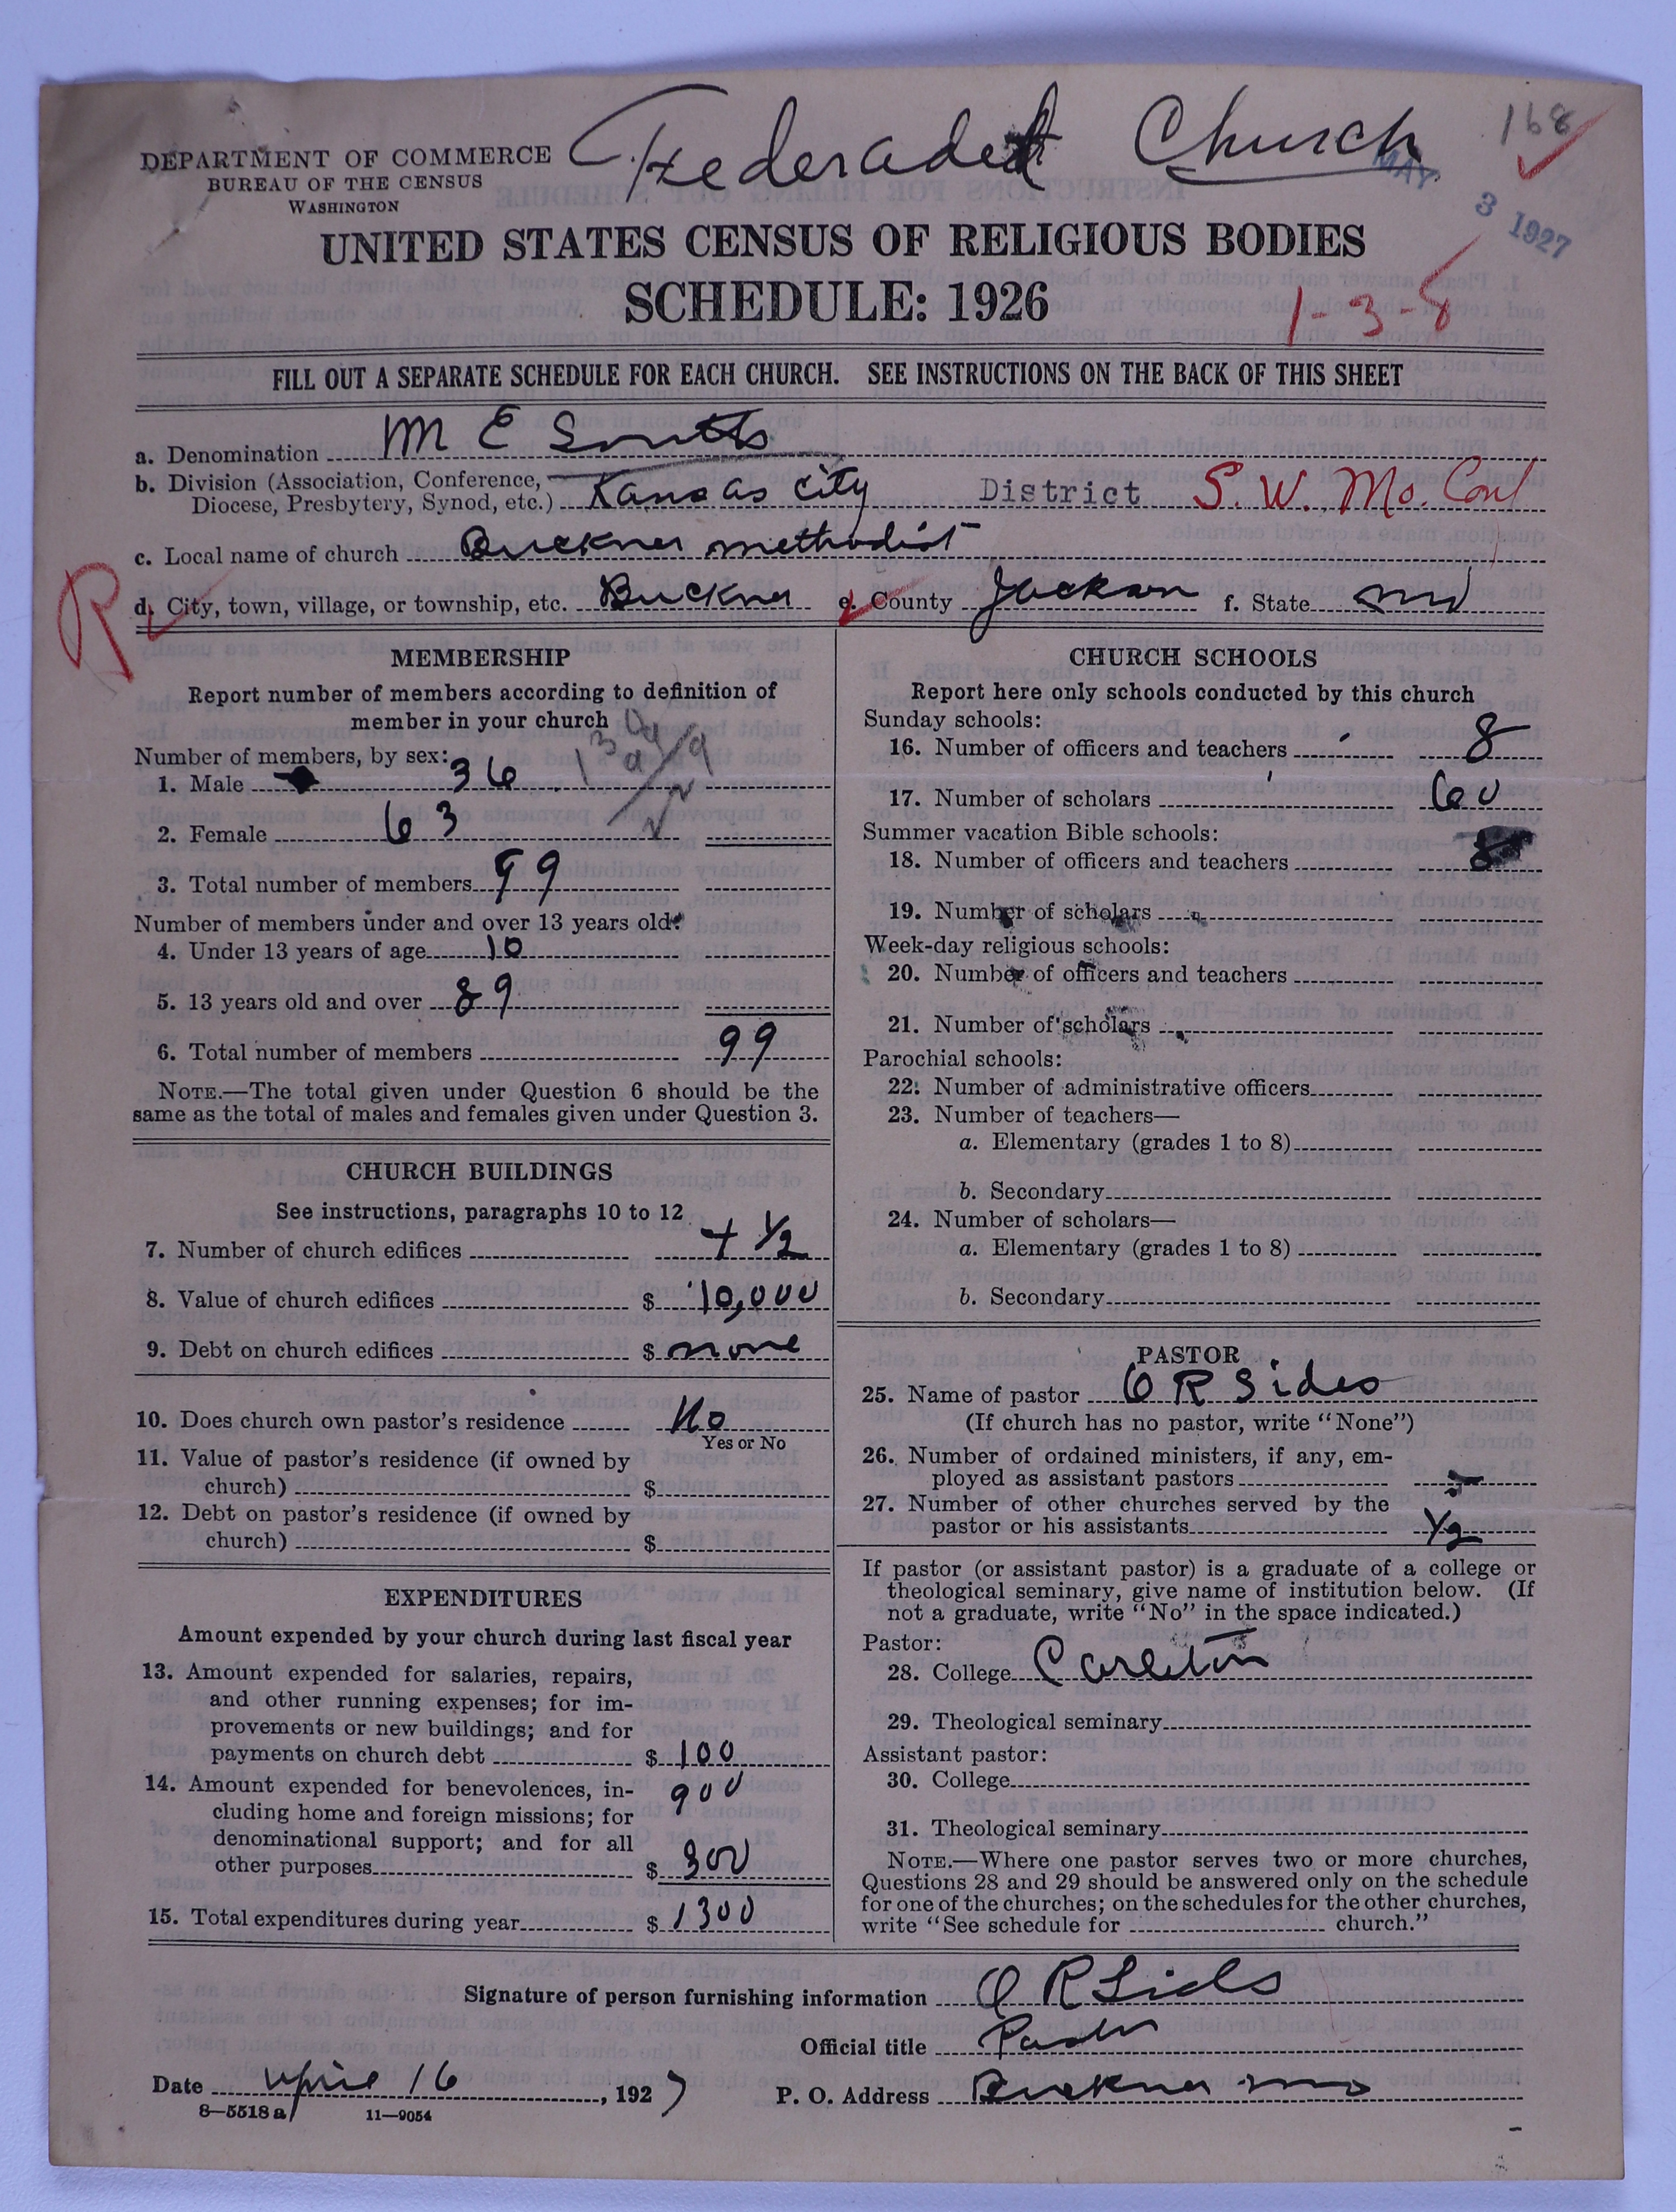 Federated Church
168
DEPARTMENT OF COMMERCE
BUREAU OF THE CENSUS
WASHINGTON
MAY 3 1927
UNITED STATES CENSUS OF RELIGIOUS BODIES
SCHEDULE: 1926
1-3-8
FILL OUT A SEPARATE SCHEDULE FOR EACH CHURCH. SEE INSTRUCTIONS ON THE BACK OF THIS SHEET
a. Denomination M E South
b. Division (Association, Conference, Diocese, Presbytery, Synod, etc.) Kansas City District S. W. Mo. Conf
c. Local name of church Buckner Methodist
R
d. City, town, village, or township, etc. Buckner e. County Jackson f. State Mo
MEMBERSHIP
Report number of members according to definition of
member in your church
Number of members, by sex:
1. Male 36
2. Female 63
3. Total number of members 99
Number of members under and over 13 years old:
4. Under 13 years of age 10
5. 13 years old and over 89
6. Total number of members 99
NOTE.—The total given under Question 6 should be the
same as the total of males and females given under Question 3.
CHURCH BUILDINGS
See instructions, paragraphs 10 to 12
7. Number of church edifices 1/2
8. Value of church edifices $ 10,000
9. Debt on church edifices $ none
10. Does church own pastor's residence No
Yes or No
11. Value of pastor's residence (if owned by
church) $
12. Debt on pastor's residence (if owned by
church) $
EXPENDITURES
Amount expended by your church during last fiscal year
13. Amount expended for salaries, repairs,
and other running expenses; for im-
provements or new buildings; and for
payments on church debt $ 100
900
14. Amount expended for benevolences, in-
cluding home and foreign missions; for
denominational support; and for all
other purposes $ 300
15. Total expenditures during year $ 1300
CHURCH SCHOOLS
Report here only schools conducted by this church
Sunday schools:
16. Number of officers and teachers 8
17. Number of scholars 60
Summer vacation Bible schools:
18. Number of officers and teachers
19. Number of scholars
Week-day religious schools:
20. Number of officers and teachers
21. Number of scholars
Parochial schools:
22. Number of administrative officers
23. Number of teachers—
a. Elementary (grades 1 to 8)
b. Secondary
24. Number of scholars—
a. Elementary (grades 1 to 8)
b. Secondary
PASTOR
25. Name of pastor O R Sides
(If church has no pastor, write "None")
26. Number of ordained ministers, if any, em-
ployed as assistant pastors
27. Number of other churches served by the
pastor or his assistants 1/2
If pastor (or assistant pastor) is a graduate of a college or
theological seminary, give name of institution below. (If
not a graduate, write "No" in the space indicated.)
Pastor:
28. College Carleton
29. Theological seminary
Assistant pastor:
30. College
31. Theological seminary
NOTE.—Where one pastor serves two or more churches,
Questions 28 and 29 should be answered only on the schedule
for one of the churches; on the schedules for the other churches,
write "See schedule for church."
Signature of person furnishing information O R Sides
Official title Pastor
Date April 16, 1927 P. O. Address Buckner Mo
8—5518a 11—9054